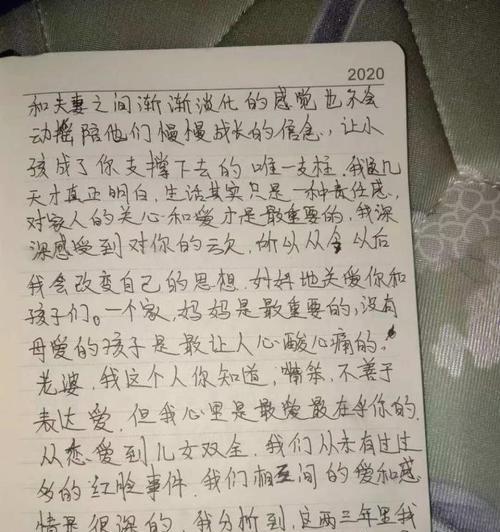 2020
和夫妻之间渐渐淡化的感觉也不会
动摇陪他们慢慢成长的信念，让小
孩成了你支撑下去的唯一支柱。我这几
天才真正明白，生活其实只是一种责任感，
对家人的关心和爱才是最重要的，我深
深感受到对你的亏欠，所以从今以后
我会改变自己的思想，好好地关爱你和
孩子们。一个家，妈妈是最重要的，没有
母爱的孩子是最让人心酸心痛的。
老婆，我这个人你知道，嘴笨，不善于
表达爱，但我心里是最爱最在乎你的。
从恋爱到儿女双全，我们从未有过过
多的红脸事件，我们相互间的爱和感
情是很深的，我分析到，这两三年里我